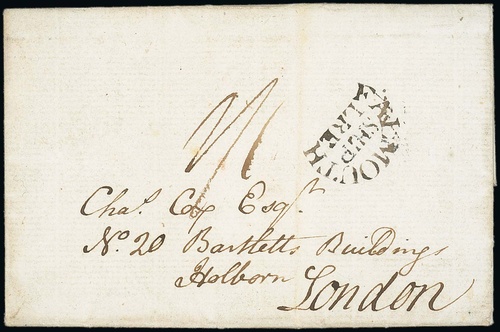 FALMOUTH
SHIP
LRE
Chas. Cox Esqr.
No. 20 Bartletts Buildings
Holborn
London